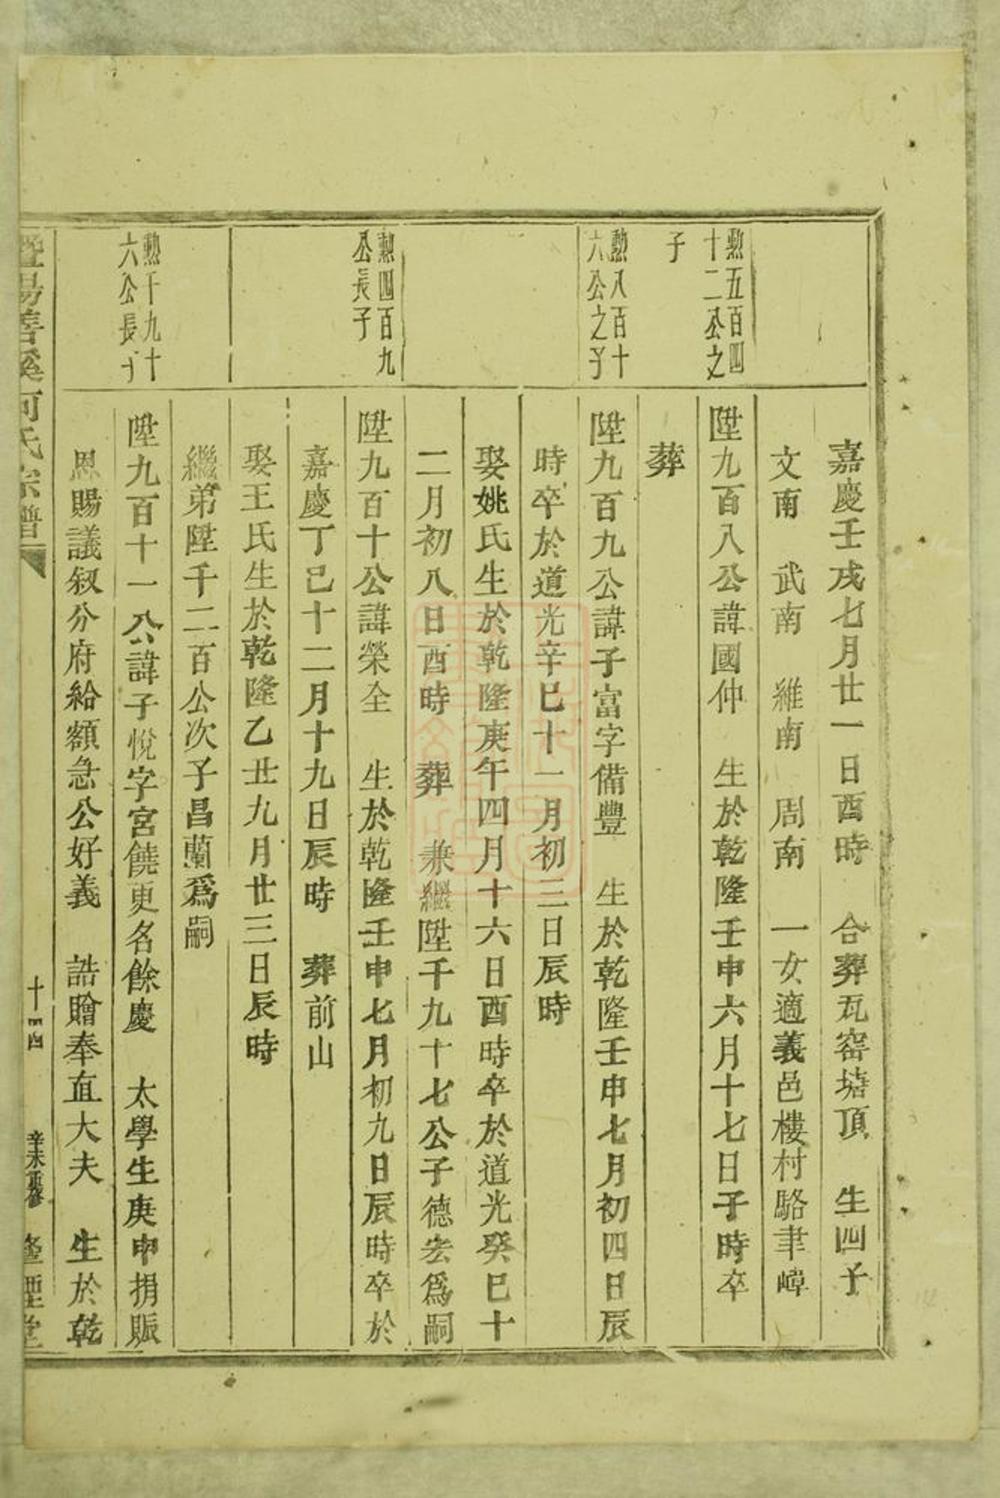 嘉慶壬戌七月廿一日酉時　合葬瓦窑塘頂　生四子
文南　武南　維南　周南　一女適義邑樓村駱聿嶂
勲五百四
十二公之
子
陞九百八公諱國仲　生於乾隆壬申六月十七日子時卒
葬
勲八百十
六公之子
陞九百九公諱子富字備豐　生於乾隆壬申七月初四日辰
時卒於道光辛巳十一月初三日辰時
娶姚氏生於乾隆庚午四月十六日酉時卒於道光癸巳十
二月初八日酉時　葬　兼繼陞千九十七公子德宏爲嗣
勲四百九
公長子
陞九百十公諱榮全　生於乾隆壬申七月初九日辰時卒於
嘉慶丁巳十二月十九日辰時　葬前山
娶王氏生於乾隆乙丑九月廿三日辰時
繼弟陞千二百公次子昌蘭爲嗣
勲千九十
六公長子
陞九百十一公諱子悅字宮饒更名餘慶　太學生庚申捐賑
恩賜議叙分府給額急公好義　誥贈奉直大夫　生於乾
暨陽善溪何氏宗譜　十四　辛未重修　堂